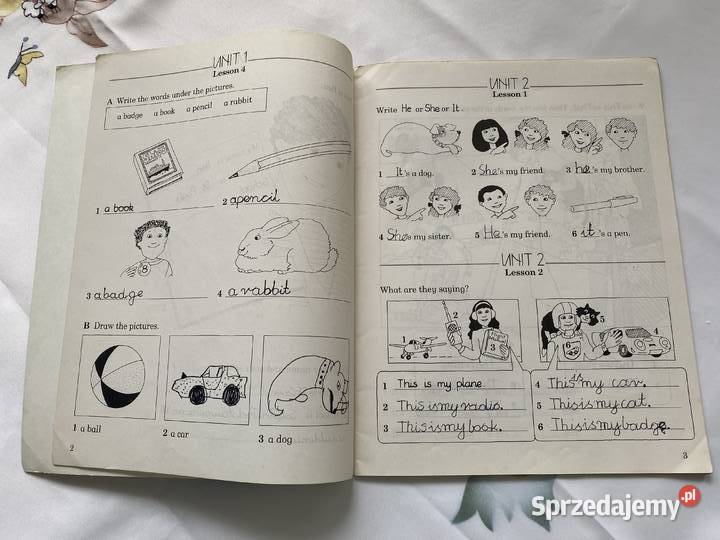 UNIT 1
Lesson 4
A Write the words under the pictures.
a badge a book a pencil a rabbit
1 a book 2 apencil
8
3 abadge 4 a rabbit
B Draw the pictures.
1 a ball 2 a car 3 a dog
2
UNIT 2
Lesson 1
Write He or She or It.
1 It's a dog. 2 She's my friend. 3 he's my brother.
4 She's my sister. 5 He's my friend. 6 it's a pen.
UNIT 2
Lesson 2
What are they saying?
1 2 3 4 5 6
1 This is my plane.
2 This ismyradio.
3 Thisismybook.
4 This is my car.
5 Thisismycat.
6 Thisismybadge.
3
Sprzedajemy.pl